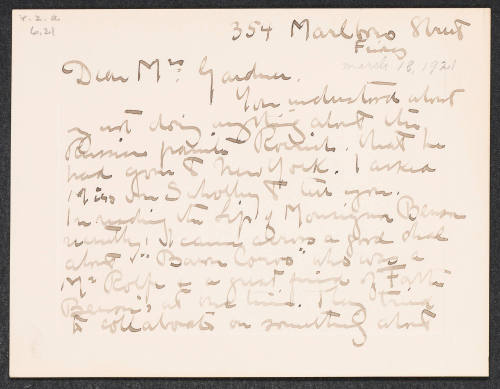 Y. 2. a
6.21
354 Marlboro Street
Friday
March 18, 1921
Dear Mrs. Gardner.
You understood about
my not doing anything about the
Russian painter Roerich. That he
had gone to New York. I asked
Miss to tell you.
In reading the Life of Monsignor Benson
recently, I came across a good deal
about "Baron Corvo" who was a
Mr Rolfe - a great friend of Father
Benson's at one time. They tried
to collaborate on something about